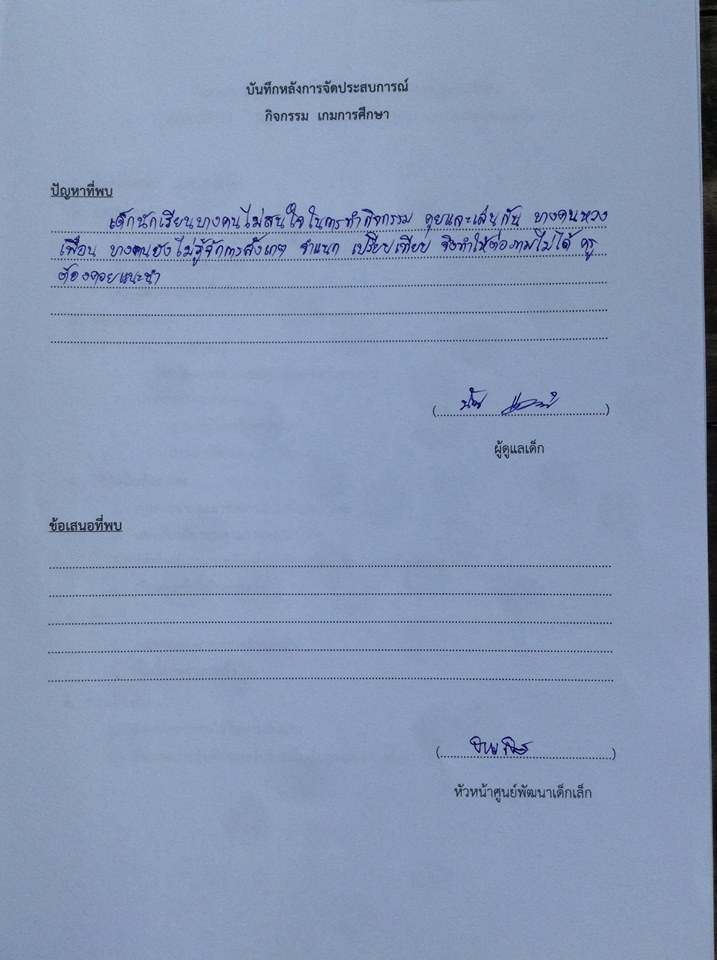 บันทึกหลังการจัดประสบการณ์
กิจกรรม เกมการศึกษา
ปัญหาที่พบ
เด็กนักเรียนบางคนไม่สนใจในการทำกิจกรรม คุยและเล่นกัน บางคนหวง
เพื่อน บางคนยังไม่รู้จักการสังเกต จำแนก เปรียบเทียบ จึงทำให้ต่อภาพไม่ได้ ครู
ต้องคอยแนะนำ
( )
ผู้ดูแลเด็ก
ข้อเสนอที่พบ
( )
หัวหน้าศูนย์พัฒนาเด็กเล็ก